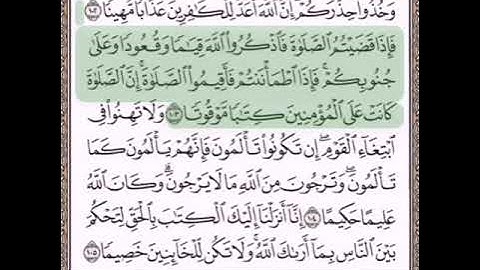 وَخُذُوا۟ حِذْرَكُمْ إِنَّ ٱللَّهَ أَعَدَّ لِلْكَـٰفِرِينَ عَذَابًا مُّهِينًا ١٠٢
فَإِذَا قَضَيْتُمُ ٱلصَّلَوٰةَ فَٱذْكُرُوا۟ ٱللَّهَ قِيَـٰمًا وَقُعُودًا وَعَلَىٰ
جُنُوبِكُمْ ۚ فَإِذَا ٱطْمَأْنَنتُمْ فَأَقِيمُوا۟ ٱلصَّلَوٰةَ ۚ إِنَّ ٱلصَّلَوٰةَ
كَانَتْ عَلَى ٱلْمُؤْمِنِينَ كِتَـٰبًا مَّوْقُوتًا ١٠٣ وَلَا تَهِنُوا۟ فِى
ٱبْتِغَآءِ ٱلْقَوْمِ ۖ إِن تَكُونُوا۟ تَأْلَمُونَ فَإِنَّهُمْ يَأْلَمُونَ كَمَا
تَأْلَمُونَ ۖ وَتَرْجُونَ مِنَ ٱللَّهِ مَا لَا يَرْجُونَ ۗ وَكَانَ ٱللَّهُ
عَلِيمًا حَكِيمًا ١٠٤ إِنَّآ أَنزَلْنَآ إِلَيْكَ ٱلْكِتَـٰبَ بِٱلْحَقِّ لِتَحْكُمَ
بَيْنَ ٱلنَّاسِ بِمَآ أَرَىٰكَ ٱللَّهُ ۚ وَلَا تَكُن لِّلْخَآئِنِينَ خَصِيمًا ١٠٥